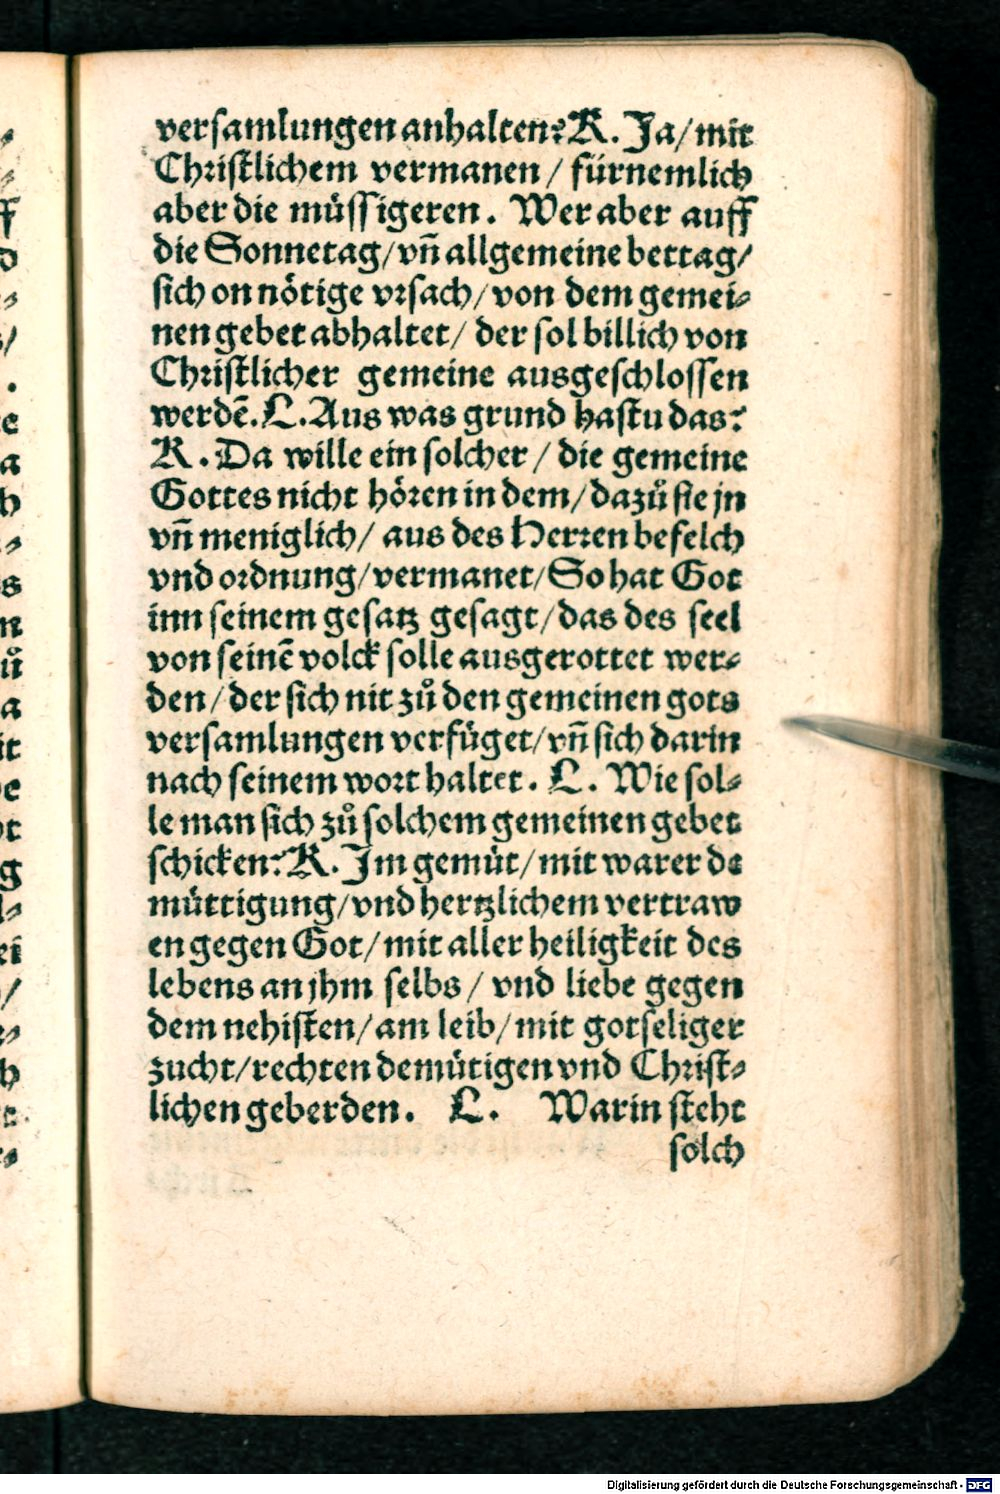 versamlungen anhalten? K. Ja/ mit
Christlichem vermanen / fürnemlich
aber die müssigeren. Wer aber auff
die Sonnetag/ vñ allgemeine bettag/
sich on nötige vrsach/ von dem gemei⸗
nen gebet abhaltet/ der sol billich von
Christlicher gemeine ausgeschlossen
werdē. L. Aus was grund hastu das?
K. Da wille ein solcher / die gemeine
Gottes nicht hören in dem/ dazů sie jn
vñ meniglich/ aus des Herren befelch
vnd ordnung/ vermanet/ So hat Got
inn seinem gesatz gesagt/ das des seel
von seinē volck solle ausgerottet wer⸗
den/ der sich nit zů den gemeinen gots
versamlungen verfüget/ vñ sich darin
nach seinem wort haltet. L. Wie sol⸗
le man sich zů solchem gemeinen gebet
schicken? K. Im gemüt/ mit warer de
müttigung/ vnd hertzlichem vertraw
en gegen Got/ mit aller heiligkeit des
lebens an jhm selbs / vnd liebe gegen
dem nehisten/ am leib/ mit gotseliger
zucht/ rechten demütigen vnd Christ⸗
lichen geberden. L. Warin steht
solch
Digitalisierung gefördert durch die Deutsche Forschungsgemeinschaft - DFG